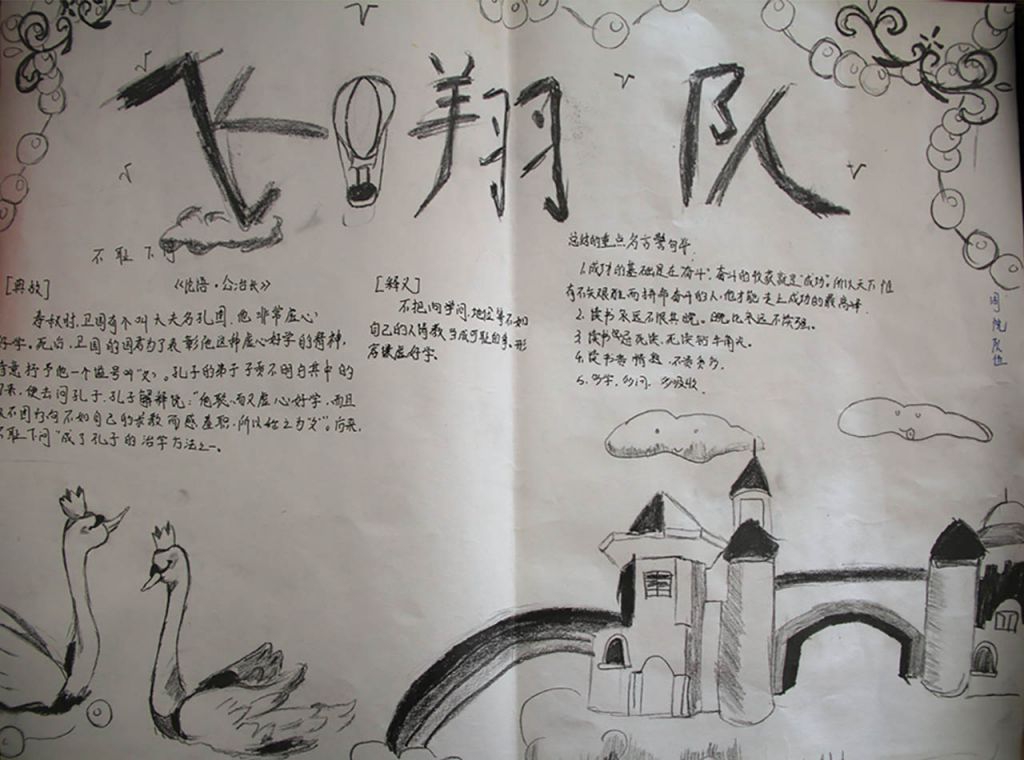 飞翔队
不耻下问
[典故]
《论语·公冶长》
春秋时,卫国有个叫大夫名孔圉,他非常虚心
好学。死后,卫国的国君为了表彰他这种虚心好学的精神,
特意授予他一个谥号叫"文"。孔子的弟子子贡不明白其中的
便去问孔子,孔子解释说:"他聪而又虚心好学,而且
不因为向不如自己的求教而感羞耻,所以给之为文"。后来,
不耻下问"成了孔子的治学方法之一。
[释义]
不把向学问、地位等不如
自己的人请教当成可耻的事。形
容谦虚好学。
总结的重点名言警句
1.成才的基础是在"奋斗",奋斗的收获就是"成功"。所以天下惟
有不怕艰难而拼命奋斗的人,也才能走上成功的最高峰.
2.读书永远不恨其晚。晚比永远不读强。
3.读书忌死读,死读钻牛角尖。
4.读书要
5.多学,多问,多吸收.